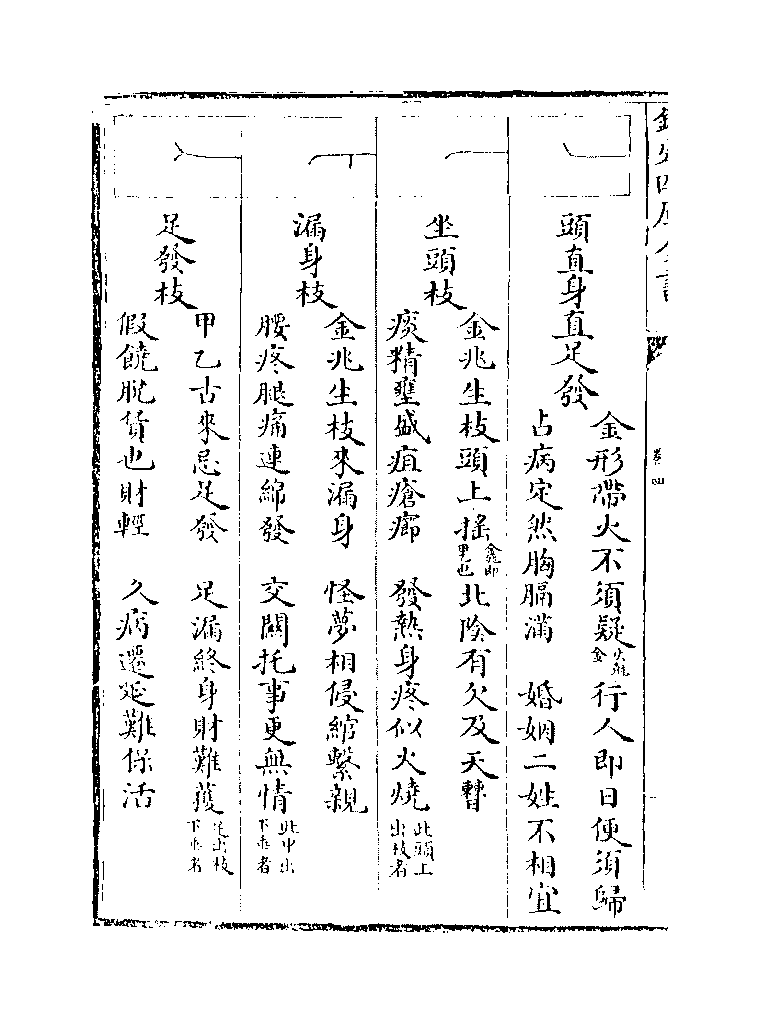 欽定四庫全書
卷四
頭直身直足發
金形帶火不須疑 火剋金 行人即日便須歸
占病定然胸膈滿 婚姻二姓不相宜
坐頭枝
金兆生枝頭上搖 北陰有欠及天瞽
痰精壅盛疽瘡癤 發熱身疼似火燒 此頭上出枝者
漏身枝
金兆生枝來漏身 怪夢相侵綰繫親
腰疼腿痛連綿發 交關托事更無情 此中出下垂者
足發枝
甲乙古來忌足發 足漏終身財難獲 足出枝下垂者
假饒脫貨也財輕 久病遷延難保活